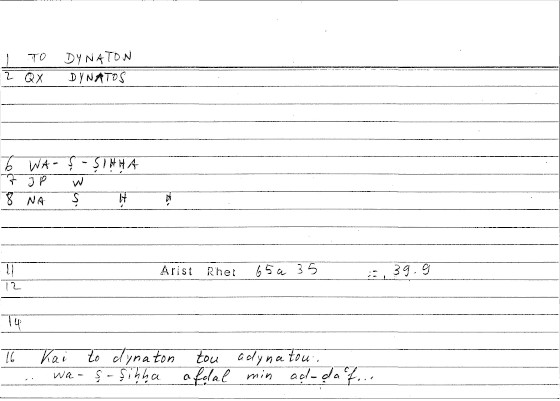 1 TO DYNATON
2 QX DYNATOS
6 WA- Ṣ - ṢIḤḤA
7 JP W
8 NA Ṣ Ḥ Ḥ
11 Arist Rhet 65a 35 = , 39.9
12
14
16 Kai to dynaton tou adynatou.
.. wa- ṣ - ṣiḥḥa afḍal min aḍ-ḍaʿf...